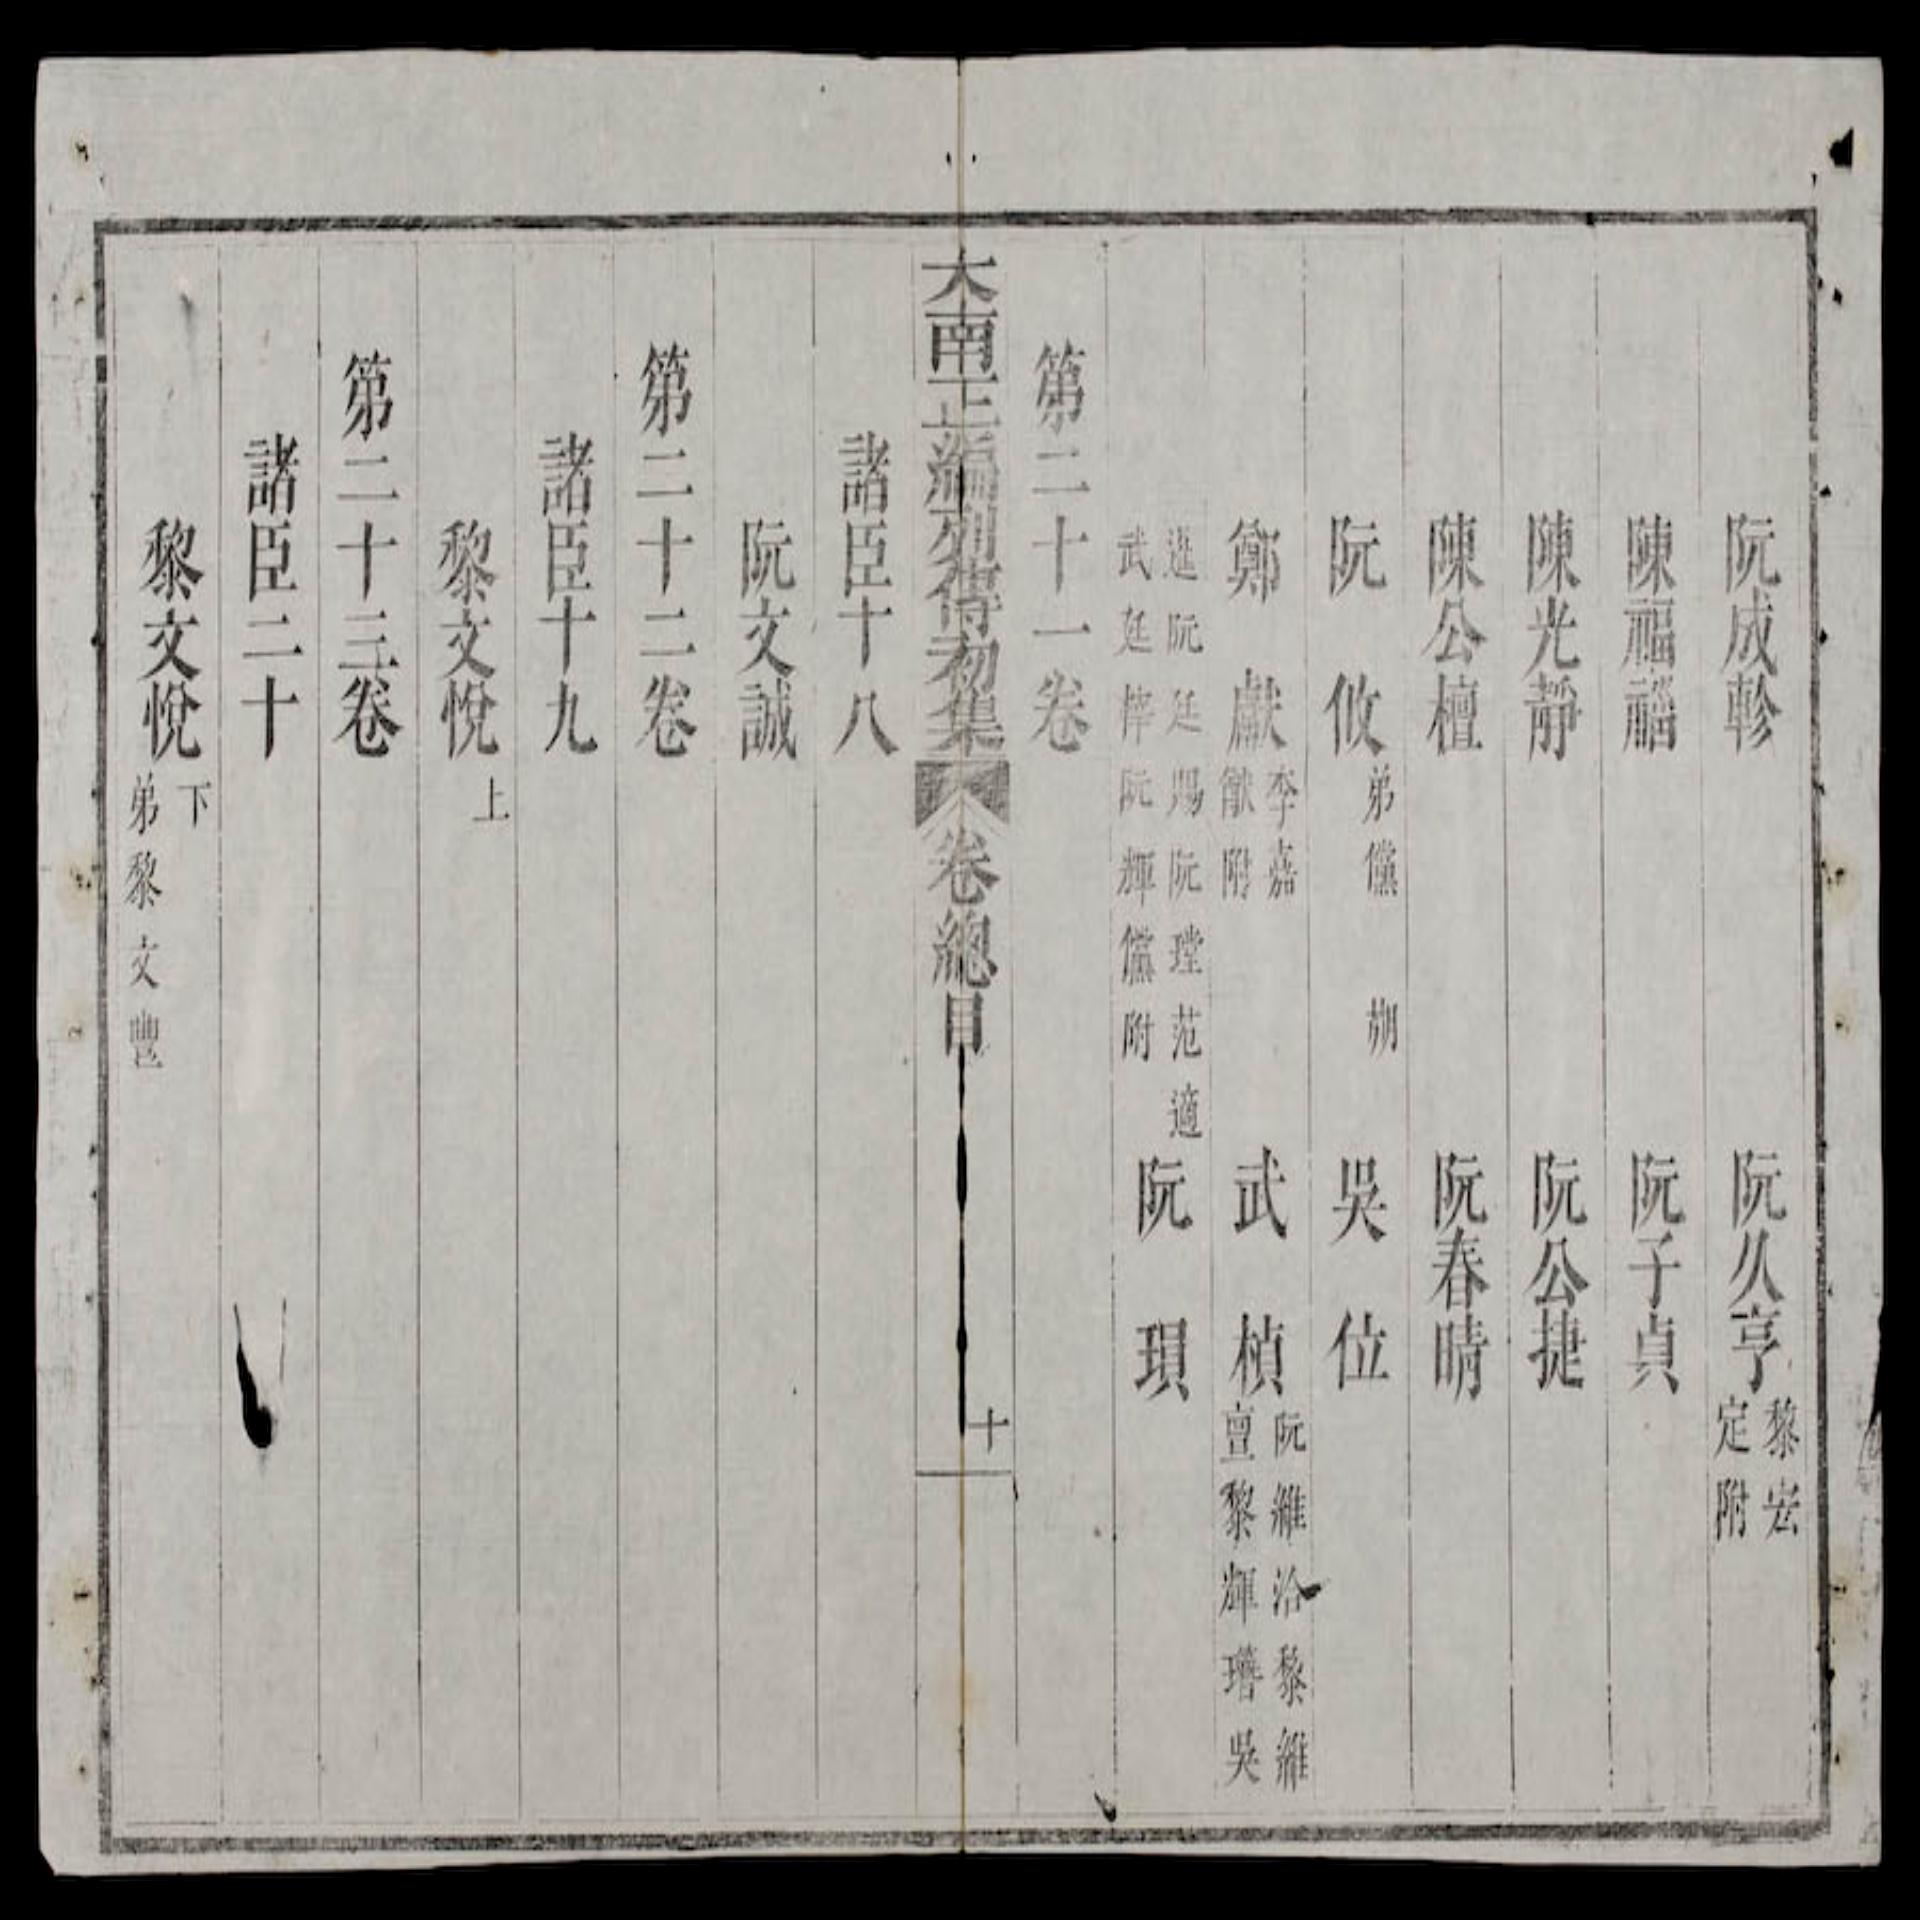 阮成軫 阮久亨 黎宏定附
陳福 阮子貞
陳光靜 阮公捷
陳公檀 阮春晴
阮攸 弟儻 朔 吳位
鄭獻 李嘉猷附 武楨 阮維洽黎維亶黎輝瑨吳
阮廷賜阮瑝范適武廷 阮輝儻附 阮瑣
第二十一卷
大南正編列傳初集 卷總目 十
諸臣十八
阮文誠
第二十二卷
諸臣十九
黎文悅 上
第二十三卷
諸臣二十
黎文悅 下 弟黎文豐